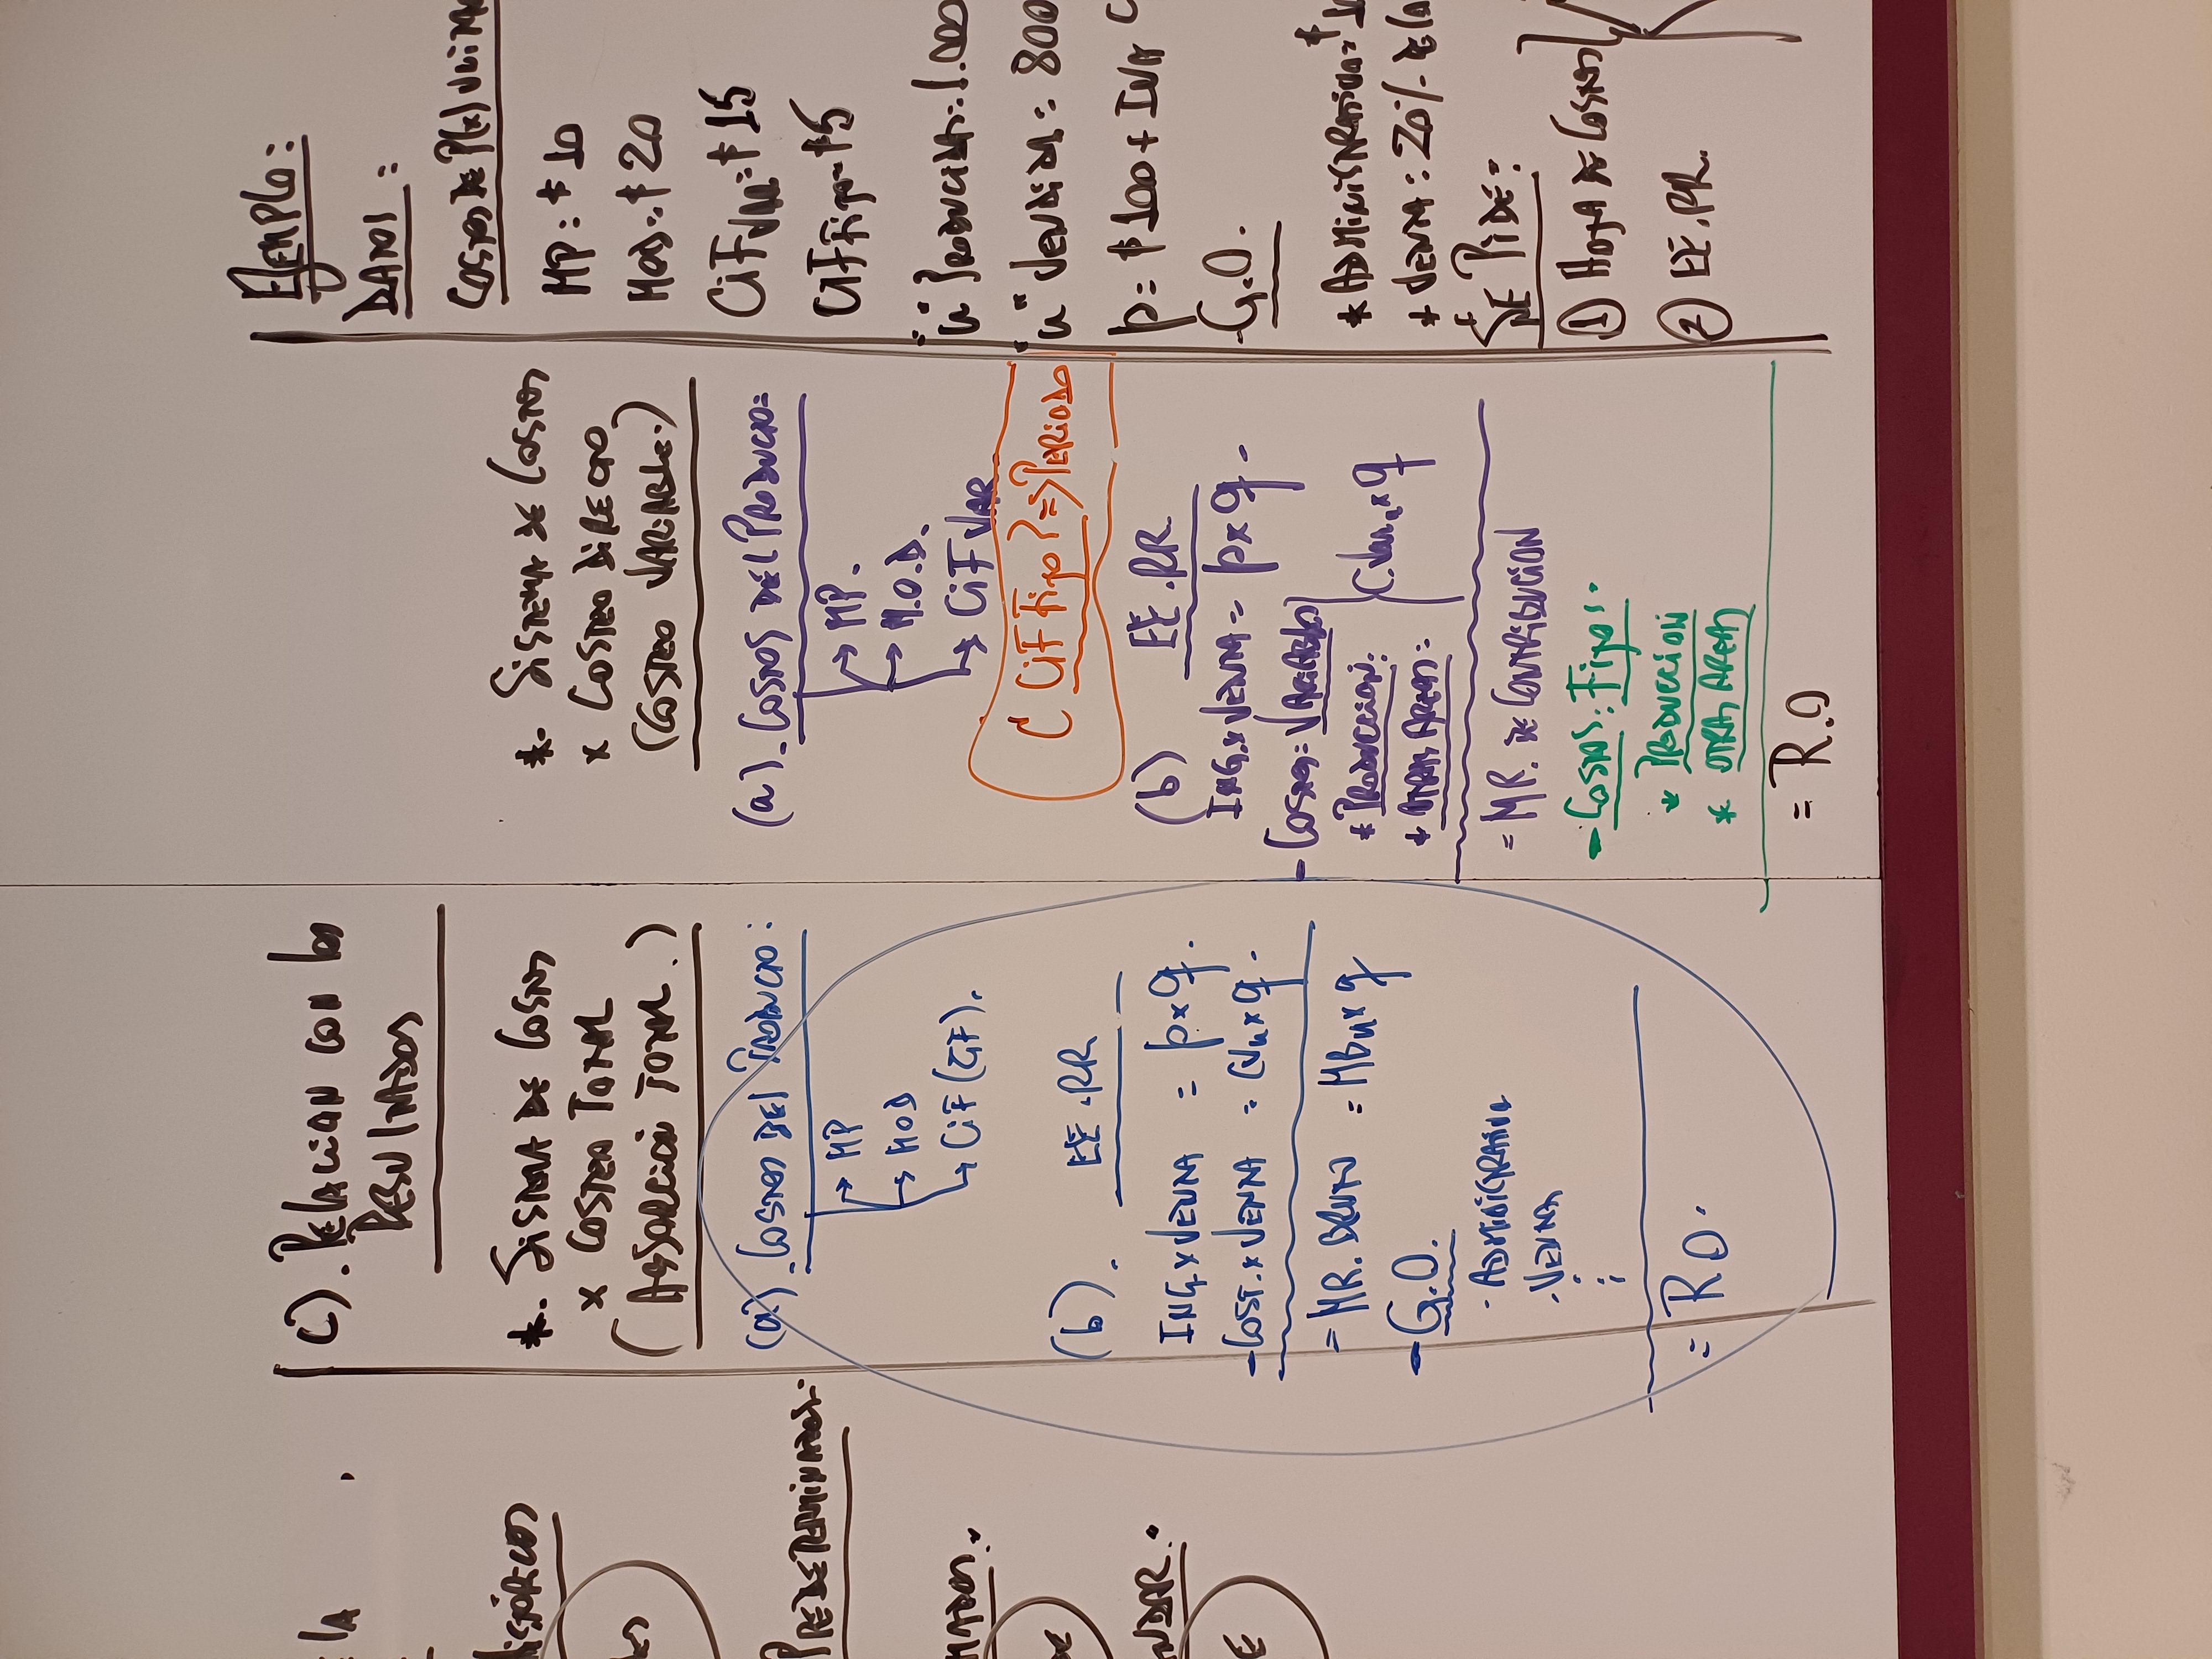 LA
HISTÓRICOS
PREDETERMINADOS.
C). RELACION CON LOS
RESULTADOS
*. SISTEMA DE COSTOS
x COSTEO TOTAL
(ABSORCION TOTAL.)
(a). COSTOS DEL PRODUCTO:
→ MP
→ MOD
→ CIF (GF).
(b). EE.RR
ING. x VENTA = p x q.
- COST. x VENTA = CVu x q.
= MR. BRUTO = MBu x q
- G.O.
- ADMINISTRATIVO
. VENTA
= R.O.
*. SISTEMA DE COSTOS
x COSTEO DIRECTO
(COSTEO VARIABLE.)
(a). COSTOS DEL PRODUCTO:
→ MP.
→ M.O.D.
→ CIF VAR
C CIF Fijo? => PERIODO
(b) EE.RR.
ING. x VENTA = p x q.
- COSTOS: VARIABLES
* PRODUCCION:
* OTRAS AREAS:
C.Var.u x q
= MR. DE CONTRIBUCION
- COSTOS: Fijos.
* PRODUCCION
* OTRAS AREAS
= R.O
EJEMPLO:
DATOS:
COSTOS DE P(x)
MP: $10
MOD: $20
CIF VAR = $15
CIF Fijo = $5
"u" PRODUCIDAS = 1.000
"u" VENDIDAS = 800
p = $100 + IVA
G.O.
* ADMINISTRATIVO = $
* VENTA: 20% DE
SE PIDE:
① HOJA DE COSTOS
② EE.RR.